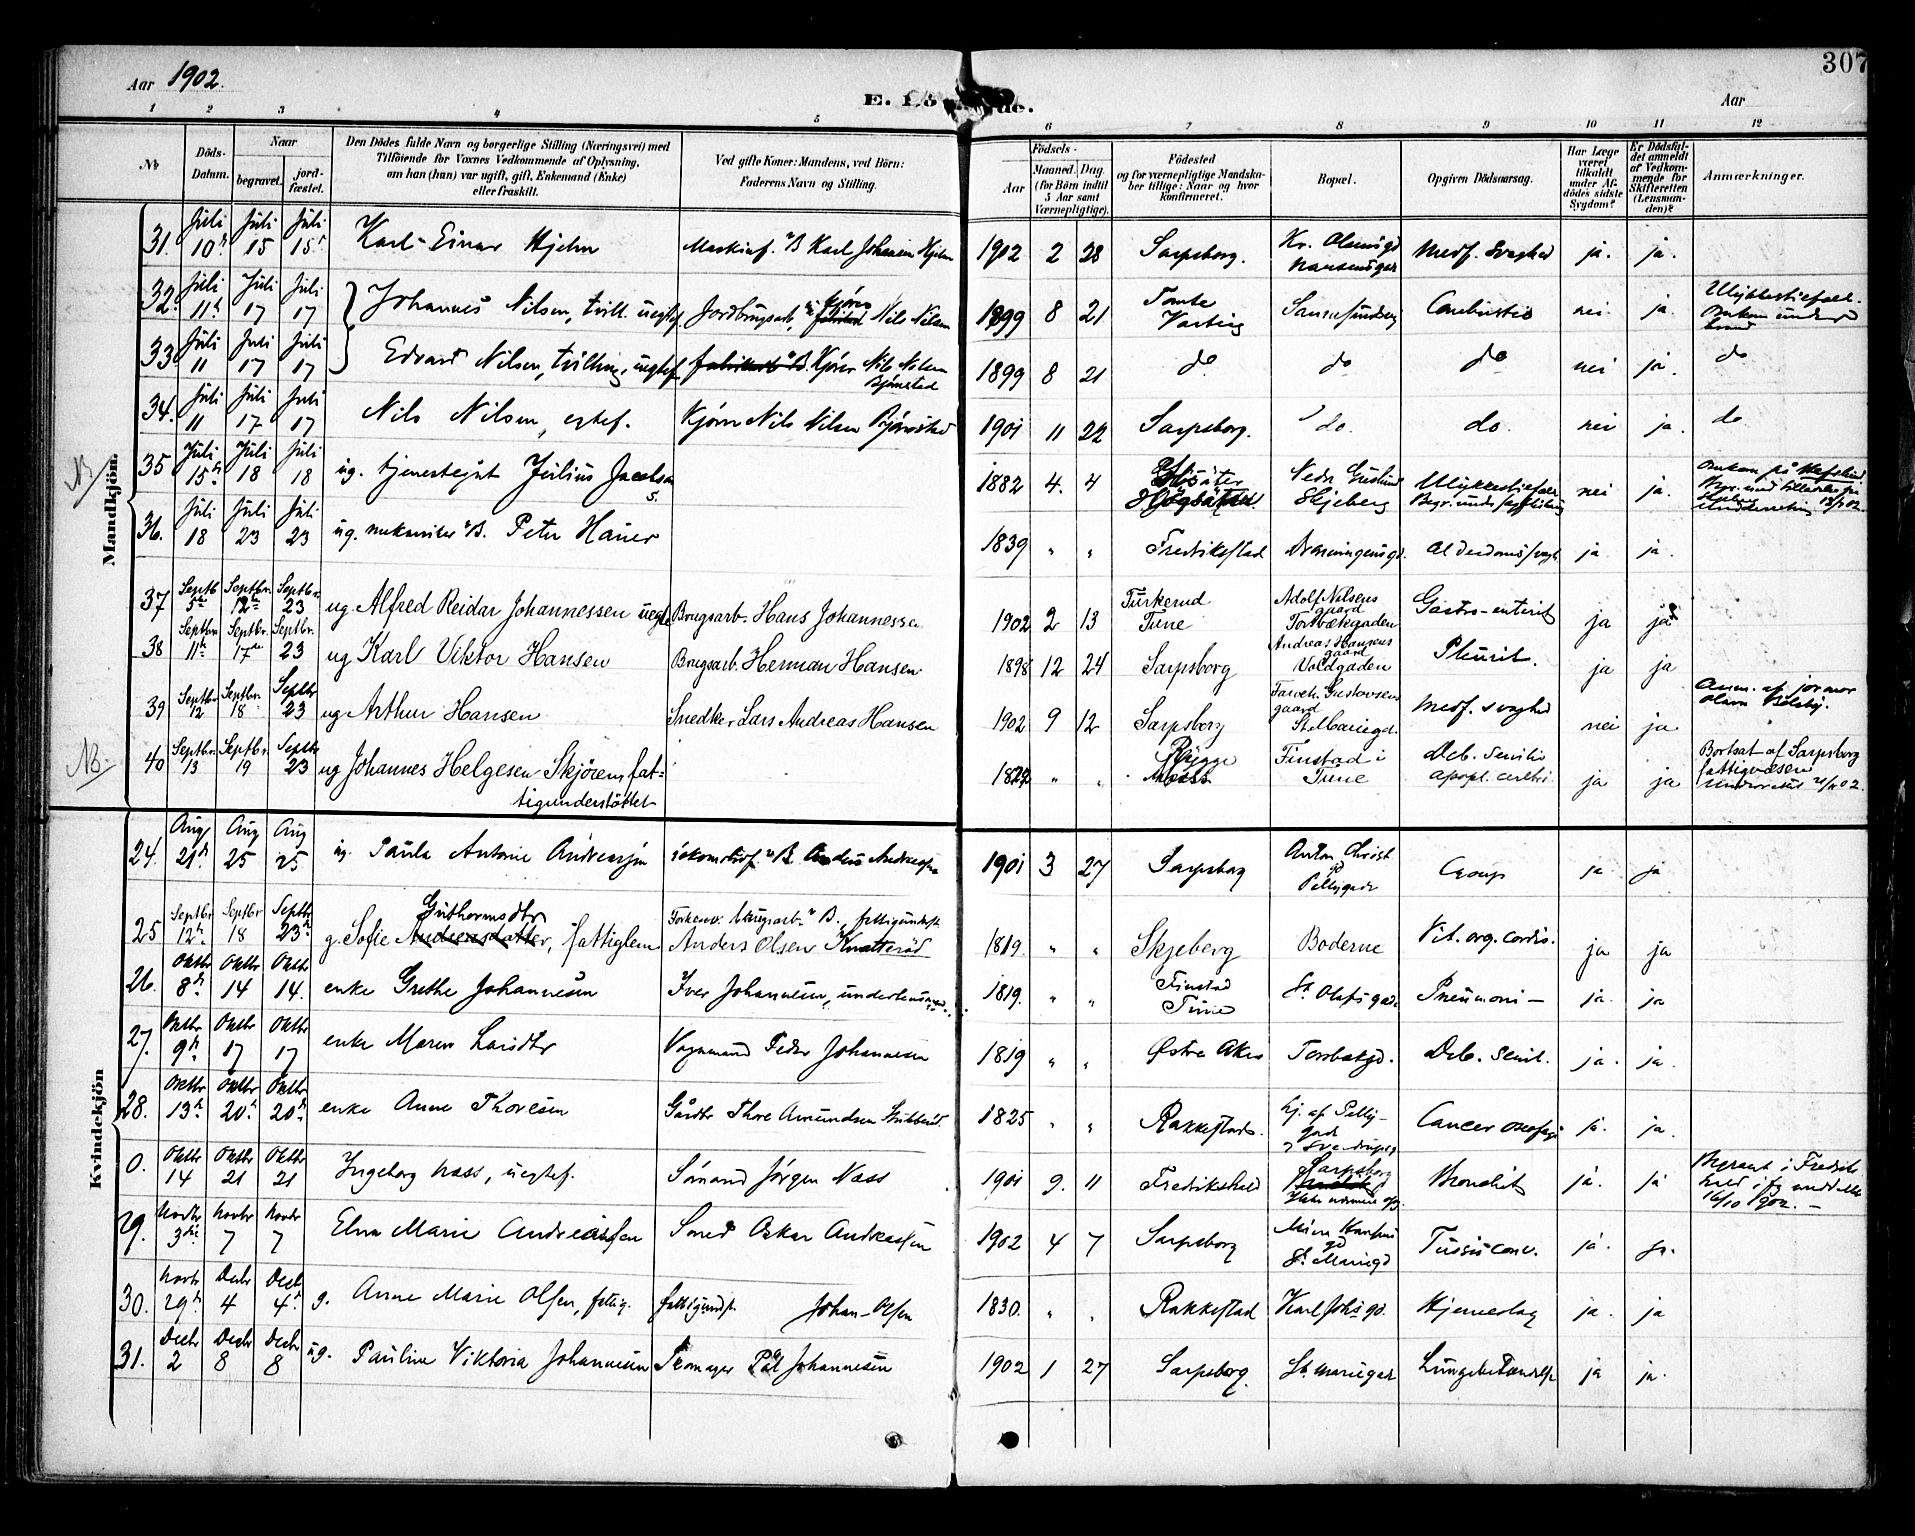 307
Aar 1902.
Aar
1 2 3 4 5 6 7 8 9 10 11 12
No
Döds-Datum.
Naar
begravet.
jordfæstet.
Den Dödes fulde Navn og borgerlige Stilling (Næringsvei) med
Tilföiende for Voxnes Vedkommende af Oplysning,
om han (hun) var ugift, gift, Enkemand (Enke)
eller fraskilt.
Ved gifte Koner: Mandens, ved Börn:
Faderens Navn og Stilling.
Födsels-
Aar
Maaned. Dag.
(for Börn indtil 5 Aar samt Værnepligtige).
Födested
og for værnepligtige Mandskaber tillige: Naar og hvor konfirmeret.
Bopæl.
Opgiven Dödsaarsag.
Har Læge været tilkaldt under Afdödes sidste Sygdom?
Er Dödsfaldet anmeldt af Vedkommende for Skifteretten (Lensmanden)?
Anmærkninger.
Mandkjön.
31. Juli 10de Juli 15 Juli 15 Karl Einar Hjelm Maskinf. B Karl Johansen Hjelm 1902 2 28 Sarpsborg. Medf. svaghed ja. ja.
32. Juli 11te Juli 17 Juli 17 Johannes Nilsen, tvill. uegtef. Jordbrugsarb. Kjörer Nils Nilsen 1899 8 21 Tomte Varteig Sannesundsvej Combustio nei ja. Ulykkestilfælde. Omkom under brand
33. Juli 11 Juli 17 Juli 17 Edvard Nilsen, tvilling, uegtef. Kjörer Nils Nilsen Bjönstad 1899 8 21 do do do nei ja. do
34. Juli 11 Juli 17 Juli 17 Nils Nilsen, egtef. Kjörer Nils Nilsen Bjönstad 1901 11 22 Sarpsborg. do. do. nei ja. do.
NB
35 Juli 15de Juli 18 Juli 18 ug. tjenestegut Julius Jacobsen 1882 4. 4 Skjeberg Ulykkestilfælde nei ja.
36. Juli 18 Juli 23 Juli 23 ug. mekaniker B. Peter Hauer 1839 " " Fredrikstad Alderdomssvagh. ja ja.
37 Septb 5te Septbr. 12te Septbr. 23 ug. Alfred Reidar Johannessen uegte Brugsarb. Hans Johannessen 1902 2 13 Turkerud Tune Adolf Nilsens gaard Torsbækgaden Gastro-enterit ja ja
38 Septbr. 11te Septbr. 17de Septbr. 23 ug Karl Viktor Hansen Brugsarb. Herman Hansen 1898 12 24 Sarpsborg Andreas Hansens gaard Voldgaden Pleurit. ja ja
39 Septbr 12 Septbr. 18 Septbr 23 ug Arthur Hansen Snedker Lars Andreas Hansen 1902 9 12 Sarpsborg Gustavsens gaard St. Mariegd. Medf. svaghed nei ja Anm. af jormor
NB.
40 Septbr. 13 Septbr. 19 Septbr 23 ug Johannes Helgesen Skjören, fattigunderstöttet Rygge Finstad i Tune Deb. senilis apopl. cerebri ja ja Bortsat af Sarpsborg fattigvæsen
Kvindekjön
24. Aug 21de Aug 25 Aug 25 ug. Paula Antonie Andreassen Lokomotivf. B. Anders Andreassen 1901 3 27 Sarpsborg Anton Christ gd Pellygade Croup ja ja
25 Septbr 12te Septbr 18 Septbr 23de g. Sofie Guthormsdtr Andreasdatter, fattiglem Anders Olsen Knatteröd 1819. " " Skjeberg Boderne Vit. org. cordis. ja ja
26. Oktbr 8de Oktbr 14 Oktbr 14. enke Grethe Johannesen Iver Johannesen, underlensmand 1819. " " Finstad Tune St. Olafs gade Pneumoni ja. ja
27. Oktbr 9de Oktbr 17 Oktbr 17 enke Maren Larsdtr Vognmand Peder Johannesen 1819 " " Østre Aker Torsbækgd. Deb. senil. ja. ja.
28. Oktbr 13de Oktbr 20de Oktbr 20de enke Anne Thoresen Gårdbr Thore Amundsen 1825 " " Rakkestad. Hj. af Pellygade Cancer oesofagi ja. ja.
0. Oktbr 14 Oktbr 21 Oktbr 21 Ingeborg Nass, uegtef. Sömand Jörgen Nass 1901 9. 11 Fredrikshald Sarpsborg Bronchit ja. ja Begravet i Fredrikshald
29. Novbr 3die Novbr 7 Novbr 7 Elna Marie Andreassen Smed Oskar Andreassen 1902 4 7 Sarpsborg St. Mariegd Tussis conv. ja. ja.
30. Novbr 29de Decbr 4 Decbr 4de g. Anne Marie Olsen, fattig. fattigundst. Johan Olsen 1830. " " Rakkestad Karl Johs gd. Hjerneslag ja. ja
31. Decbr 2 Decbr 8 Decbr 8 ug. Pauline Viktoria Johannesen Skomager Paul Johannesen 1902 1 27 Sarpsborg. St. Mariegade Lungebetændelse ja ja.